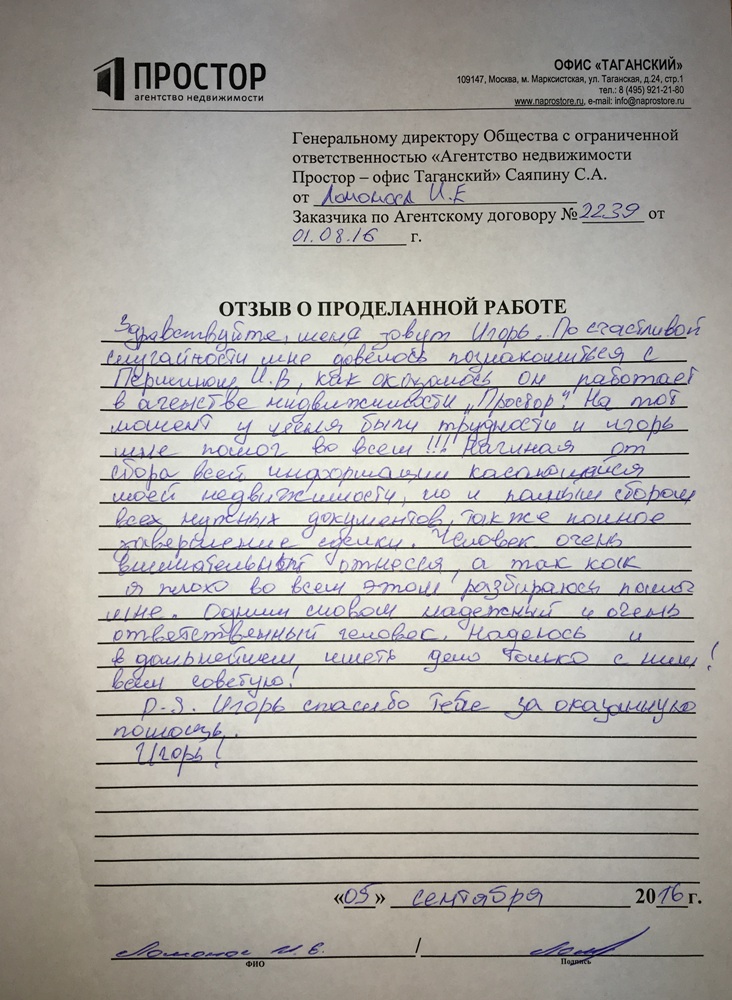 ПРОСТОР
агентство недвижимости
ОФИС «ТАГАНСКИЙ»
109147, Москва, м. Марксистская, ул. Таганская, д.24, стр.1
тел.: 8 (495) 921-21-80
www.naprostore.ru, e-mail: info@naprostore.ru
Генеральному директору Общества с ограниченной
ответственностью «Агентство недвижимости
Простор – офис Таганский» Саяпину С.А.
от Ломонос И.Е
Заказчика по Агентскому договору № 2239 от
01.08.16 г.
ОТЗЫВ О ПРОДЕЛАННОЙ РАБОТЕ
Здравствуйте, меня зовут Игорь. По счастливой
случайности мне довелось познакомиться с
И.В, как оказалось он работает
в агенстве нидвижимости „Простор". На тот
момент у меня были трудности и игорь
мне помог во всем!!! Начиная от
сбора всей информации касающийся
моей недвижимости, но и полным сбором
всех нужных документов, также полное
завершение сделки. Человек очень
внимательный отнесся, а так как
я плохо во всем этом разбираюсь помог
мне. Одним словом надежный и очень
ответственный человек. Надеюсь и
в дальнейшем иметь дело только с ним!
всем советую!
P.S. Игорь спасибо тебе за оказанную
помощь.
Игорь!
«05» сентября 2016 г.
Ломонос И. Е. /
ФИО Подпись